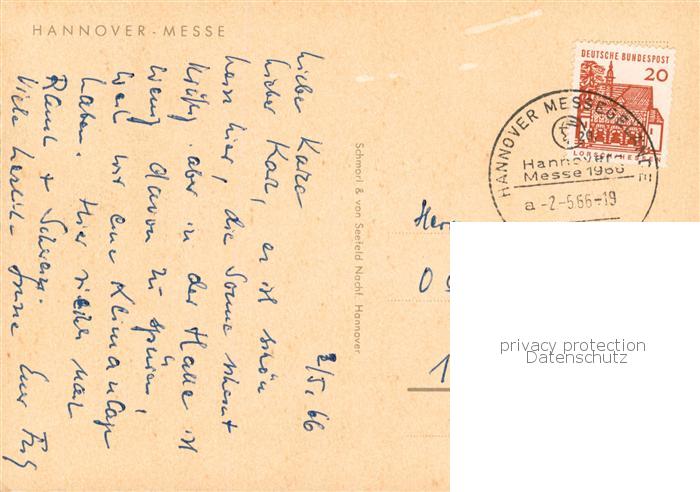 HANNOVER - MESSE
2/5. 66
Liebe Kare
lieber Kar, es ist schön
heiss hier, die Sonne scheint
kräftig. aber in der Halle ist
wenig davon zu spüren,
weil wir eine Klimaanlage
haben. Hier riecht man
Rauch & Schweiss.
Viele herzliche Grüsse Euer
Schmorl & von Seefeld Nachf. Hannover
DEUTSCHE BUNDESPOST
20
LORSCH-HESSEN
HANNOVER MESSEGELÄNDE
Hannover-
Messe 1966
a -2-5.66-19
Her
O
1
privacy protection
Datenschutz